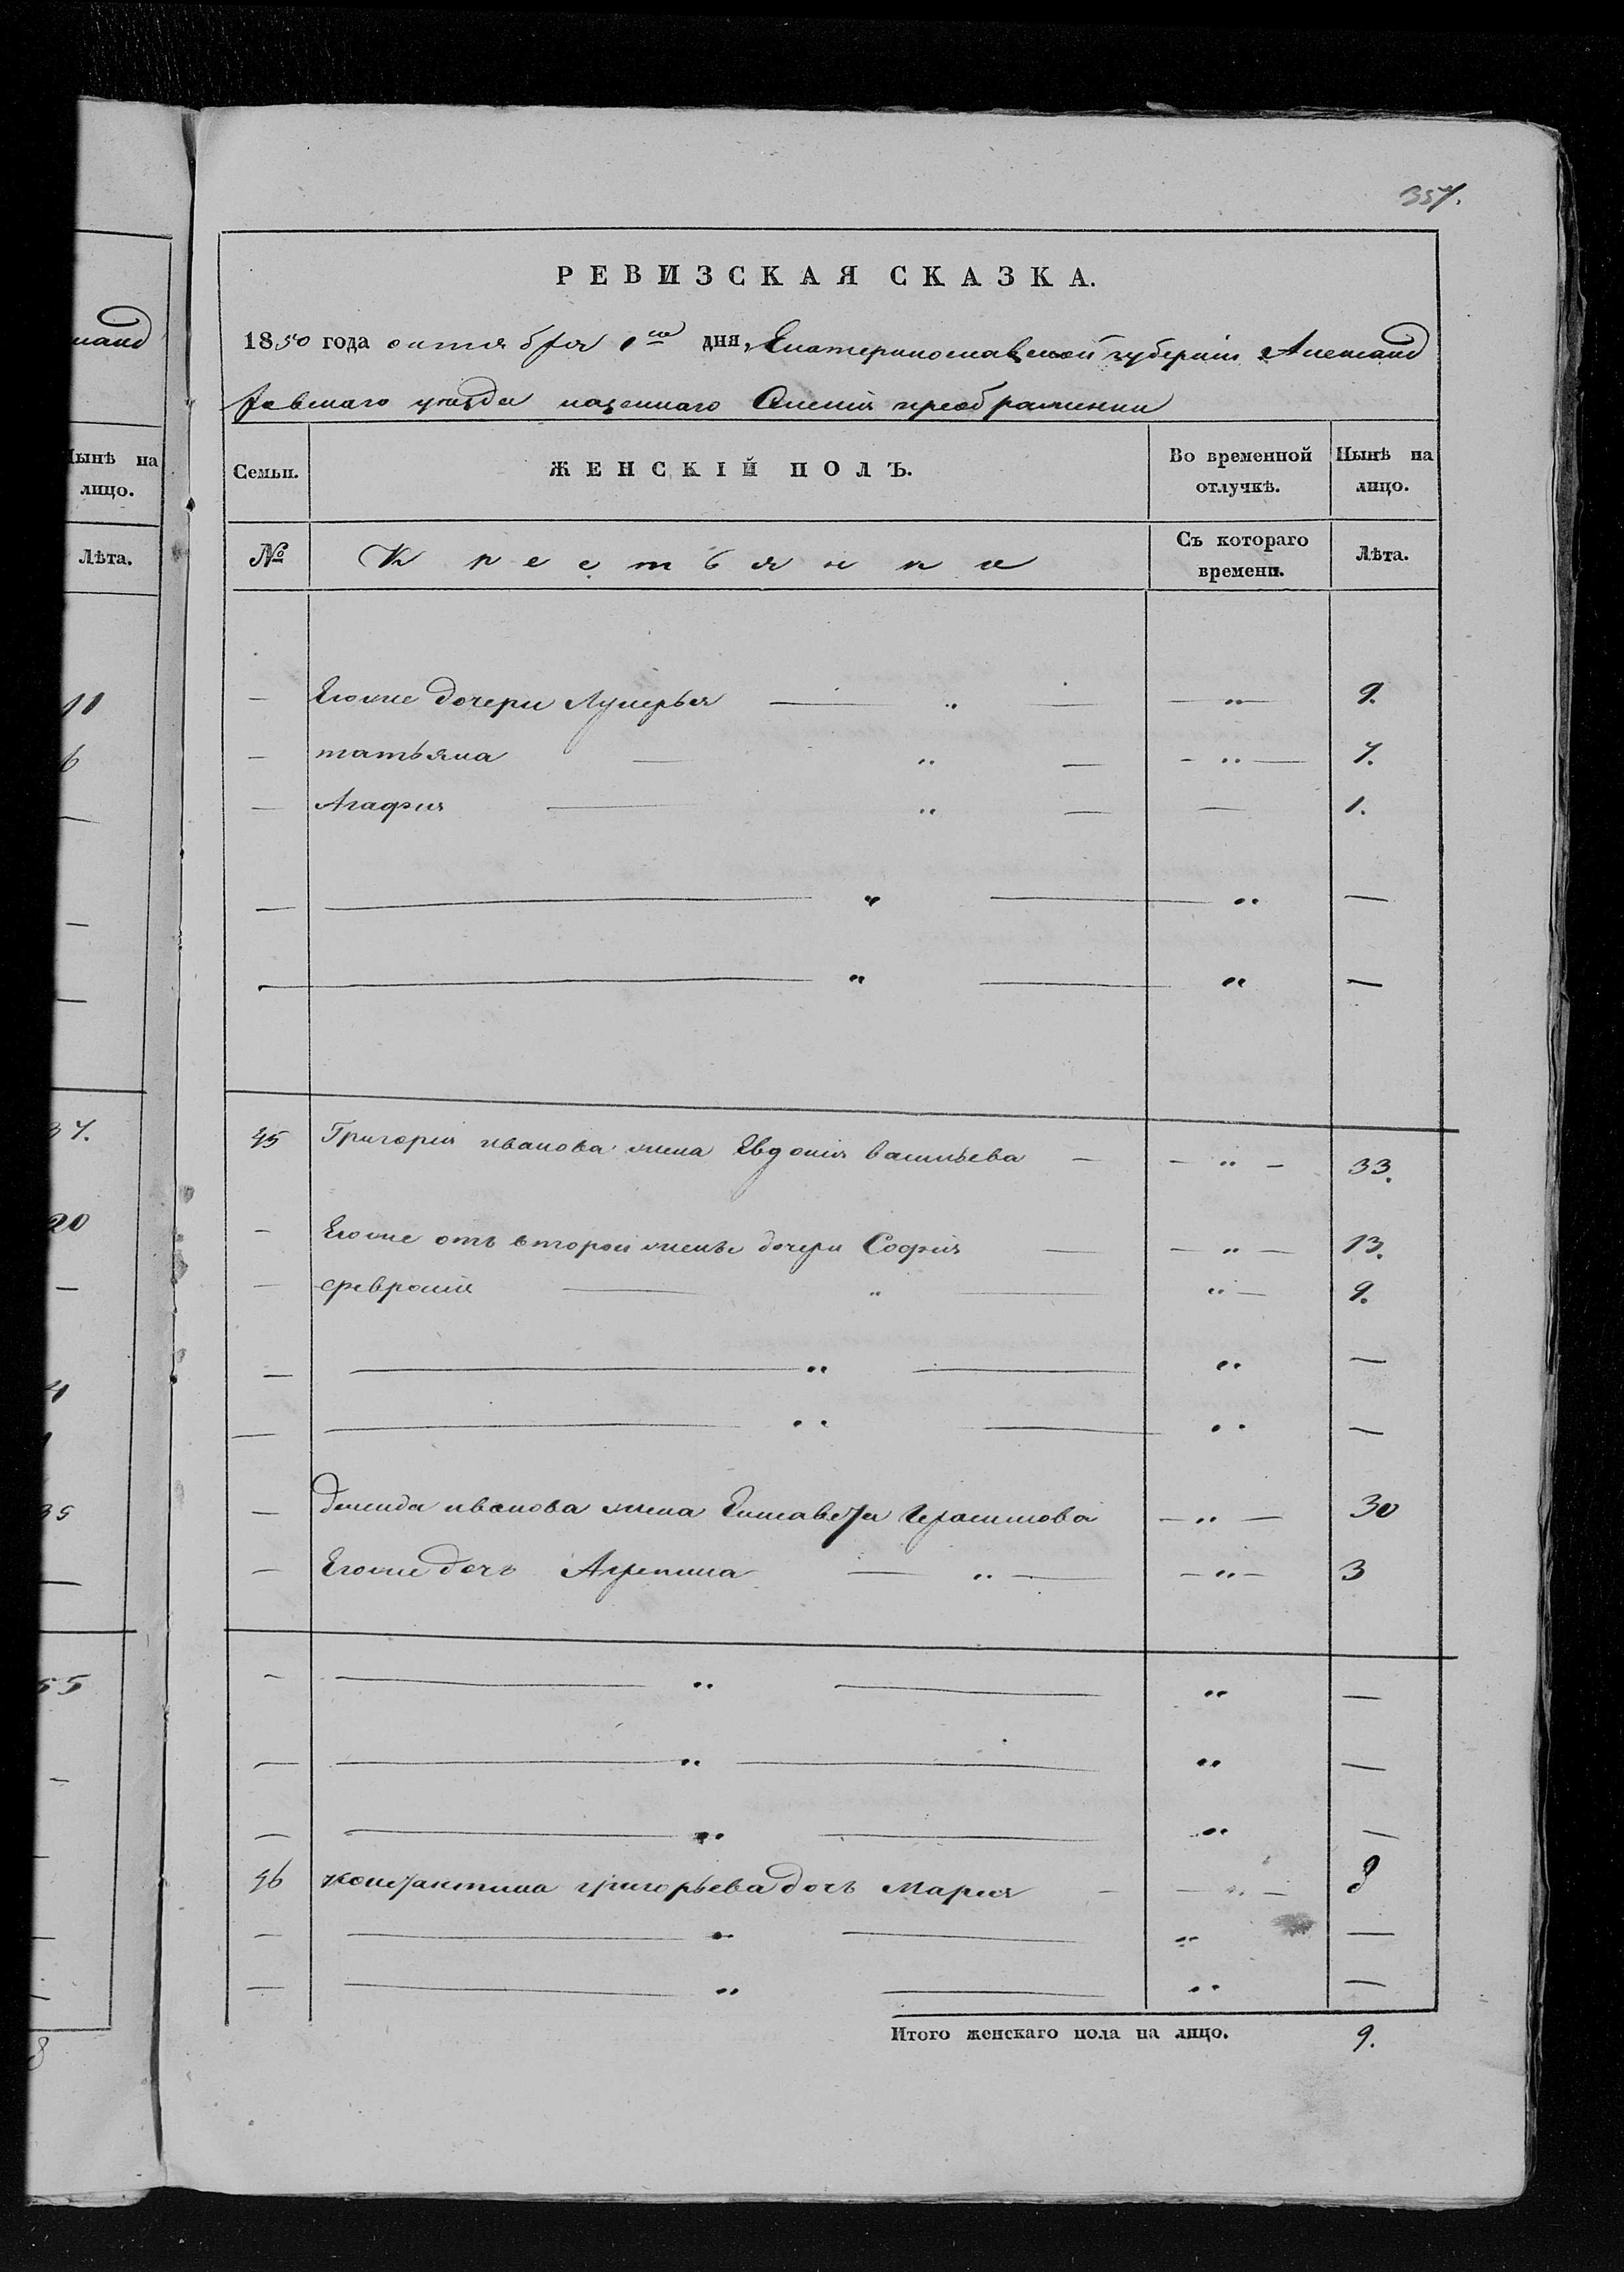 357.
РЕВИЗСКАЯ СКАЗКА.
1850 года октября 1го дня, Екатеринославской губерніи Александ
ровскаго уезда казеннаго Селенія преображенки
Семьи. ЖЕНСКІЙ ПОЛЪ. Во временной отлучкѣ. Нынѣ на лицо.
№ Крестьянки Съ котораго времени. Лѣта.
— Егоже дочери Лукерья — „ — — „ — 9.
— татьяна — „ — — „ — 7.
— Агафия — „ — — 1.
— — „ — „ —
— — „ — „ —
45 Григория иванова жена Евдокия васильева — — „ — 33.
— Егоже отъ второй жены дочери София — — „ — 13.
— феврония — „ — „ — 9.
— — „ — „ —
— — „ — „ —
— демида иванова жена Елисавета Герасимова — „ — 30
— Егоже дочь Агрепина — „ — — „ — 3
— — „ — „ —
— — „ — „ —
— — „ — „ —
46 константина григорьева дочь Мария — — „ — 8
— — „ — „ —
— — „ — „ —
Итого женскаго пола на лицо. 9.
нанд
Нынѣ на
лицо.
Лѣта.
11
6
—
—
—
37.
20
—
—
55
—
—
—
—
8